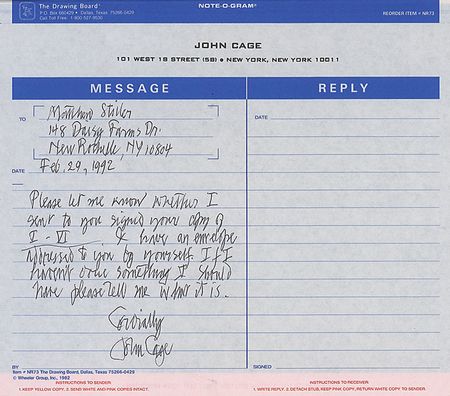 The Drawing Board
P.O. Box 660429 • Dallas, Texas 75266-0429
Call Toll Free: 1-800-527-9530
NOTE-O-GRAM®
REORDER ITEM # NR73
JOHN CAGE
101 WEST 18 STREET (5B) • NEW YORK, NEW YORK 10011
MESSAGE
REPLY
TO
Matthew
148 Daisy Farms Dr.
New Rochelle, NY 10804
DATE
Feb. 29, 1992
DATE
Please let me know whether I
sent to you signed your copy of
I - VI. I have an envelope
addressed to you by yourself. If I
haven't done something I should
have please tell me what it is.
Cordially
John Cage
BY
SIGNED
Item # NR73 The Drawing Board, Dallas, Texas 75266-0429
© Wheeler Group, Inc., 1982
INSTRUCTIONS TO SENDER
1. KEEP YELLOW COPY. 2. SEND WHITE AND PINK COPIES INTACT.
INSTRUCTIONS TO RECEIVER
1. WRITE REPLY. 2. DETACH STUB, KEEP PINK COPY, RETURN WHITE COPY TO SENDER.